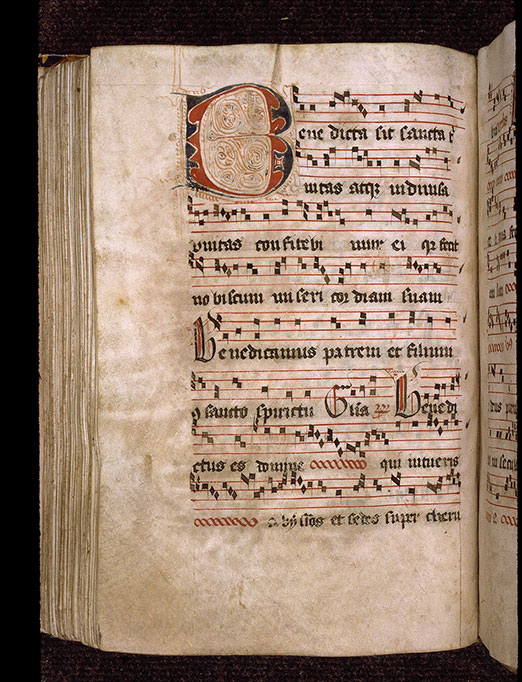 Bene dicta sit sancta t
initas atq; indiuisa
vnitas confitebi mur ei qr fecit
nobiscum miseri cordiam suam
Benedicamus patrem et filium
sancto spiritu Gra Benedi
ctus es domine qui intueris
abyssos et sedes super cheru